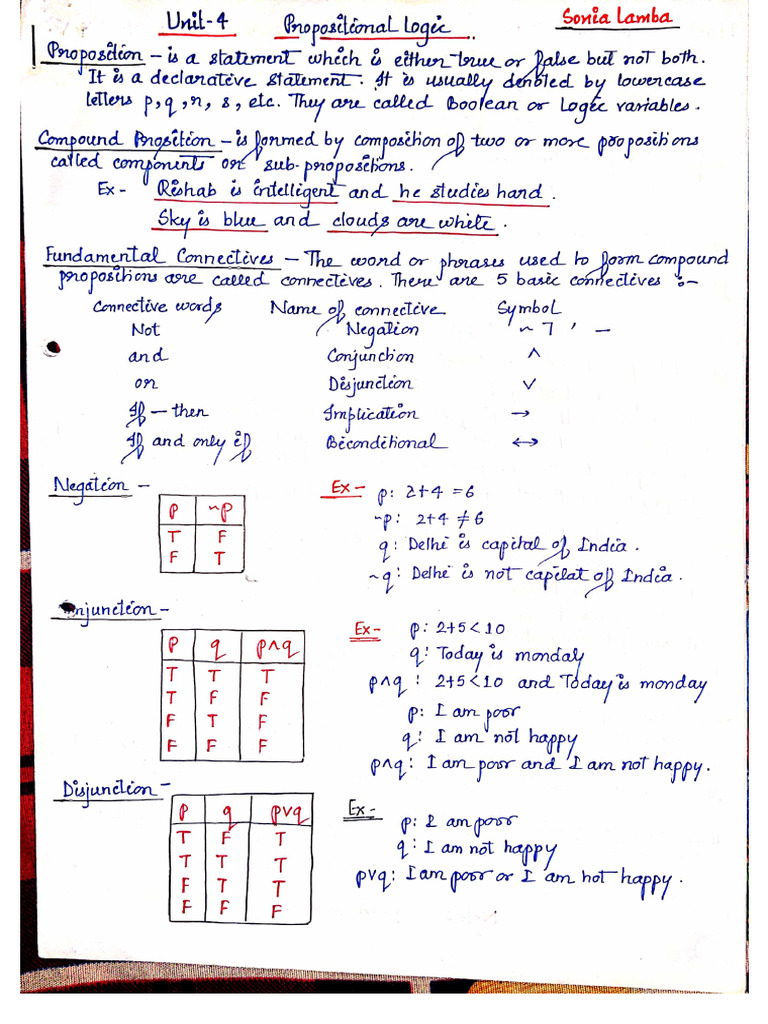 Unit-4 Propositional Logic Sonia Lamba
Proposition - is a statement which is either true or false but not both.
It is a declarative statement. It is usually denoted by lowercase
letters p, q, r, s, etc. They are called Boolean or Logic variables.
Compound Proposition - is formed by composition of two or more propositions
called components or sub-propositions.
Ex- Rishab is intelligent and he studies hard.
Sky is blue and clouds are white.
Fundamental Connectives - The word or phrases used to form compound
propositions are called connectives. There are 5 basic connectives :-
Connective words Name of connective Symbol
Not Negation ~ ⅂ ' —
and Conjunction ∧
or Disjunction ∨
If - then Implication →
If and only if Biconditional ↔
Negation -
p ~p
T F
F T
Ex- p: 2+4 = 6
~p: 2+4 ≠ 6
q: Delhi is capital of India.
~q: Delhi is not capital of India.
njunction -
p q p∧q
T T T
T F F
F T F
F F F
Ex- p: 2+5 < 10
q: Today is monday
p∧q: 2+5 < 10 and Today is monday
p: I am poor
q: I am not happy
p∧q: I am poor and I am not happy.
Disjunction -
p q p∨q
T F T
T T T
F T T
F F F
Ex- p: I am poor
q: I am not happy
p∨q: I am poor or I am not happy.